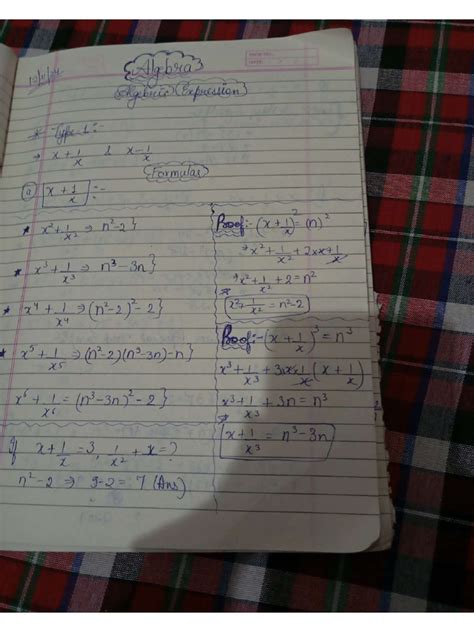 Algebra
Algebraic Expression
* Type 1 :-
→ x + 1/x & x - 1/x
Formulas
(a) x + 1/x :-
* x² + 1/x² ⇒ n² - 2}
* x³ + 1/x³ ⇒ n³ - 3n}
* x⁴ + 1/x⁴ ⇒ (n² - 2)² - 2}
* x⁵ + 1/x⁵ ⇒ (n² - 2)(n³ - 3n) - n}
x⁶ + 1/x⁶ = (n³ - 3n)² - 2}
If x + 1/x = 3, 1/x² + x = ?
n² - 2 ⇒ 9 - 2 = 7 (Ans)
Proof :- (x + 1/x)² = (n)²
⇒ x² + 1/x² + 2 x x + 1/x
⇒ x² + 1/x² + 2 = n²
x² + 1/x² = n² - 2
Proof :- (x + 1/x)³ = n³
x³ + 1/x³ + 3 x x 1/x (x + 1/x)
x³ + 1/x³ + 3n = n³
x + 1/x³ = n³ - 3n